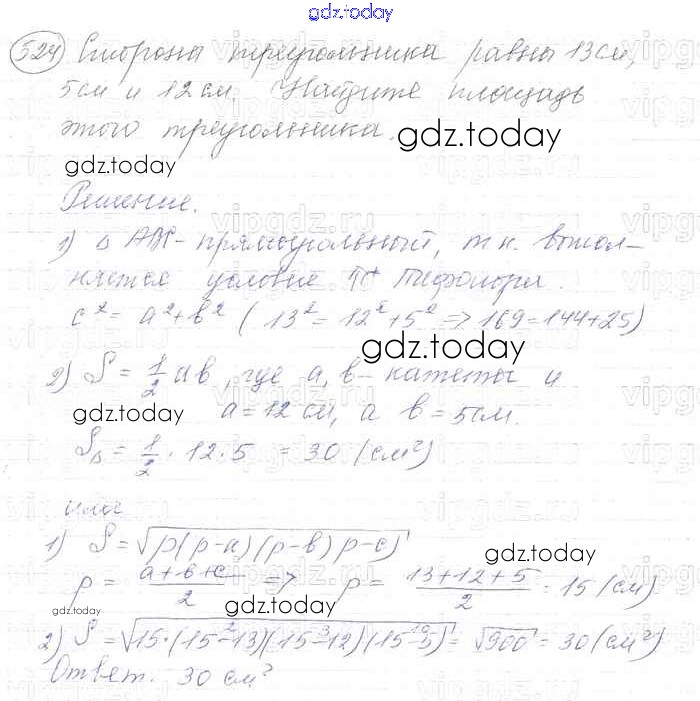 gdz.today
524) Стороны треугольника равны 13 см,
5 см и 12 см. Найдите площадь
этого треугольника.
gdz.today
gdz.today
Решение.
1) Δ АВС - прямоугольный, т.к. выпол-
няется условие Т. Пифагора.
c² = a² + b² ( 13² = 12² + 5² => 169 = 144 + 25)
gdz.today
2) S = 1/2 ab, где a, b - катеты и
gdz.today a = 12 см, а b = 5 см.
S△ = 1/2 · 12 · 5 = 30 (см²)
или
1) S = √p(p-a)(p-b)(p-c)
gdz.today
p = (a+b+c)/2 => p = (13+12+5)/2 = 15 (см)
gdz.today gdz.today
2) S = √15·(15-13)(15-12)(15-5) = √900 = 30 (см²)
Ответ: 30 см²